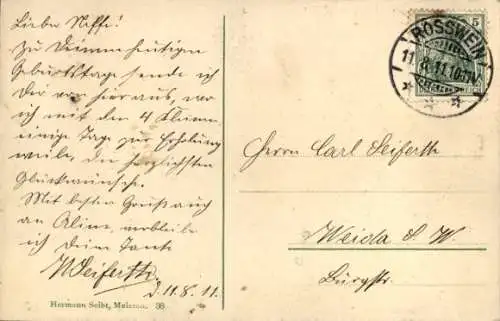 Liebe Niffi!
Zu Deinem heutigen
Geburtstage sende ich
Dir von hier aus, wo
ich mit den 4 Kleinen
einige Tage zur Erholung
weile, die herzlichsten
Glückwünsche.
Mit besten Gruß auch
an Aline verbleibe
ich Deine Tante
Seiferth.
d. 11.8.11.
Hermann Seibt, Meissen. 38
ROSSWEIN
11.8.11
5
Herrn Carl Seiferth
Weida S. W.
Burgstr.